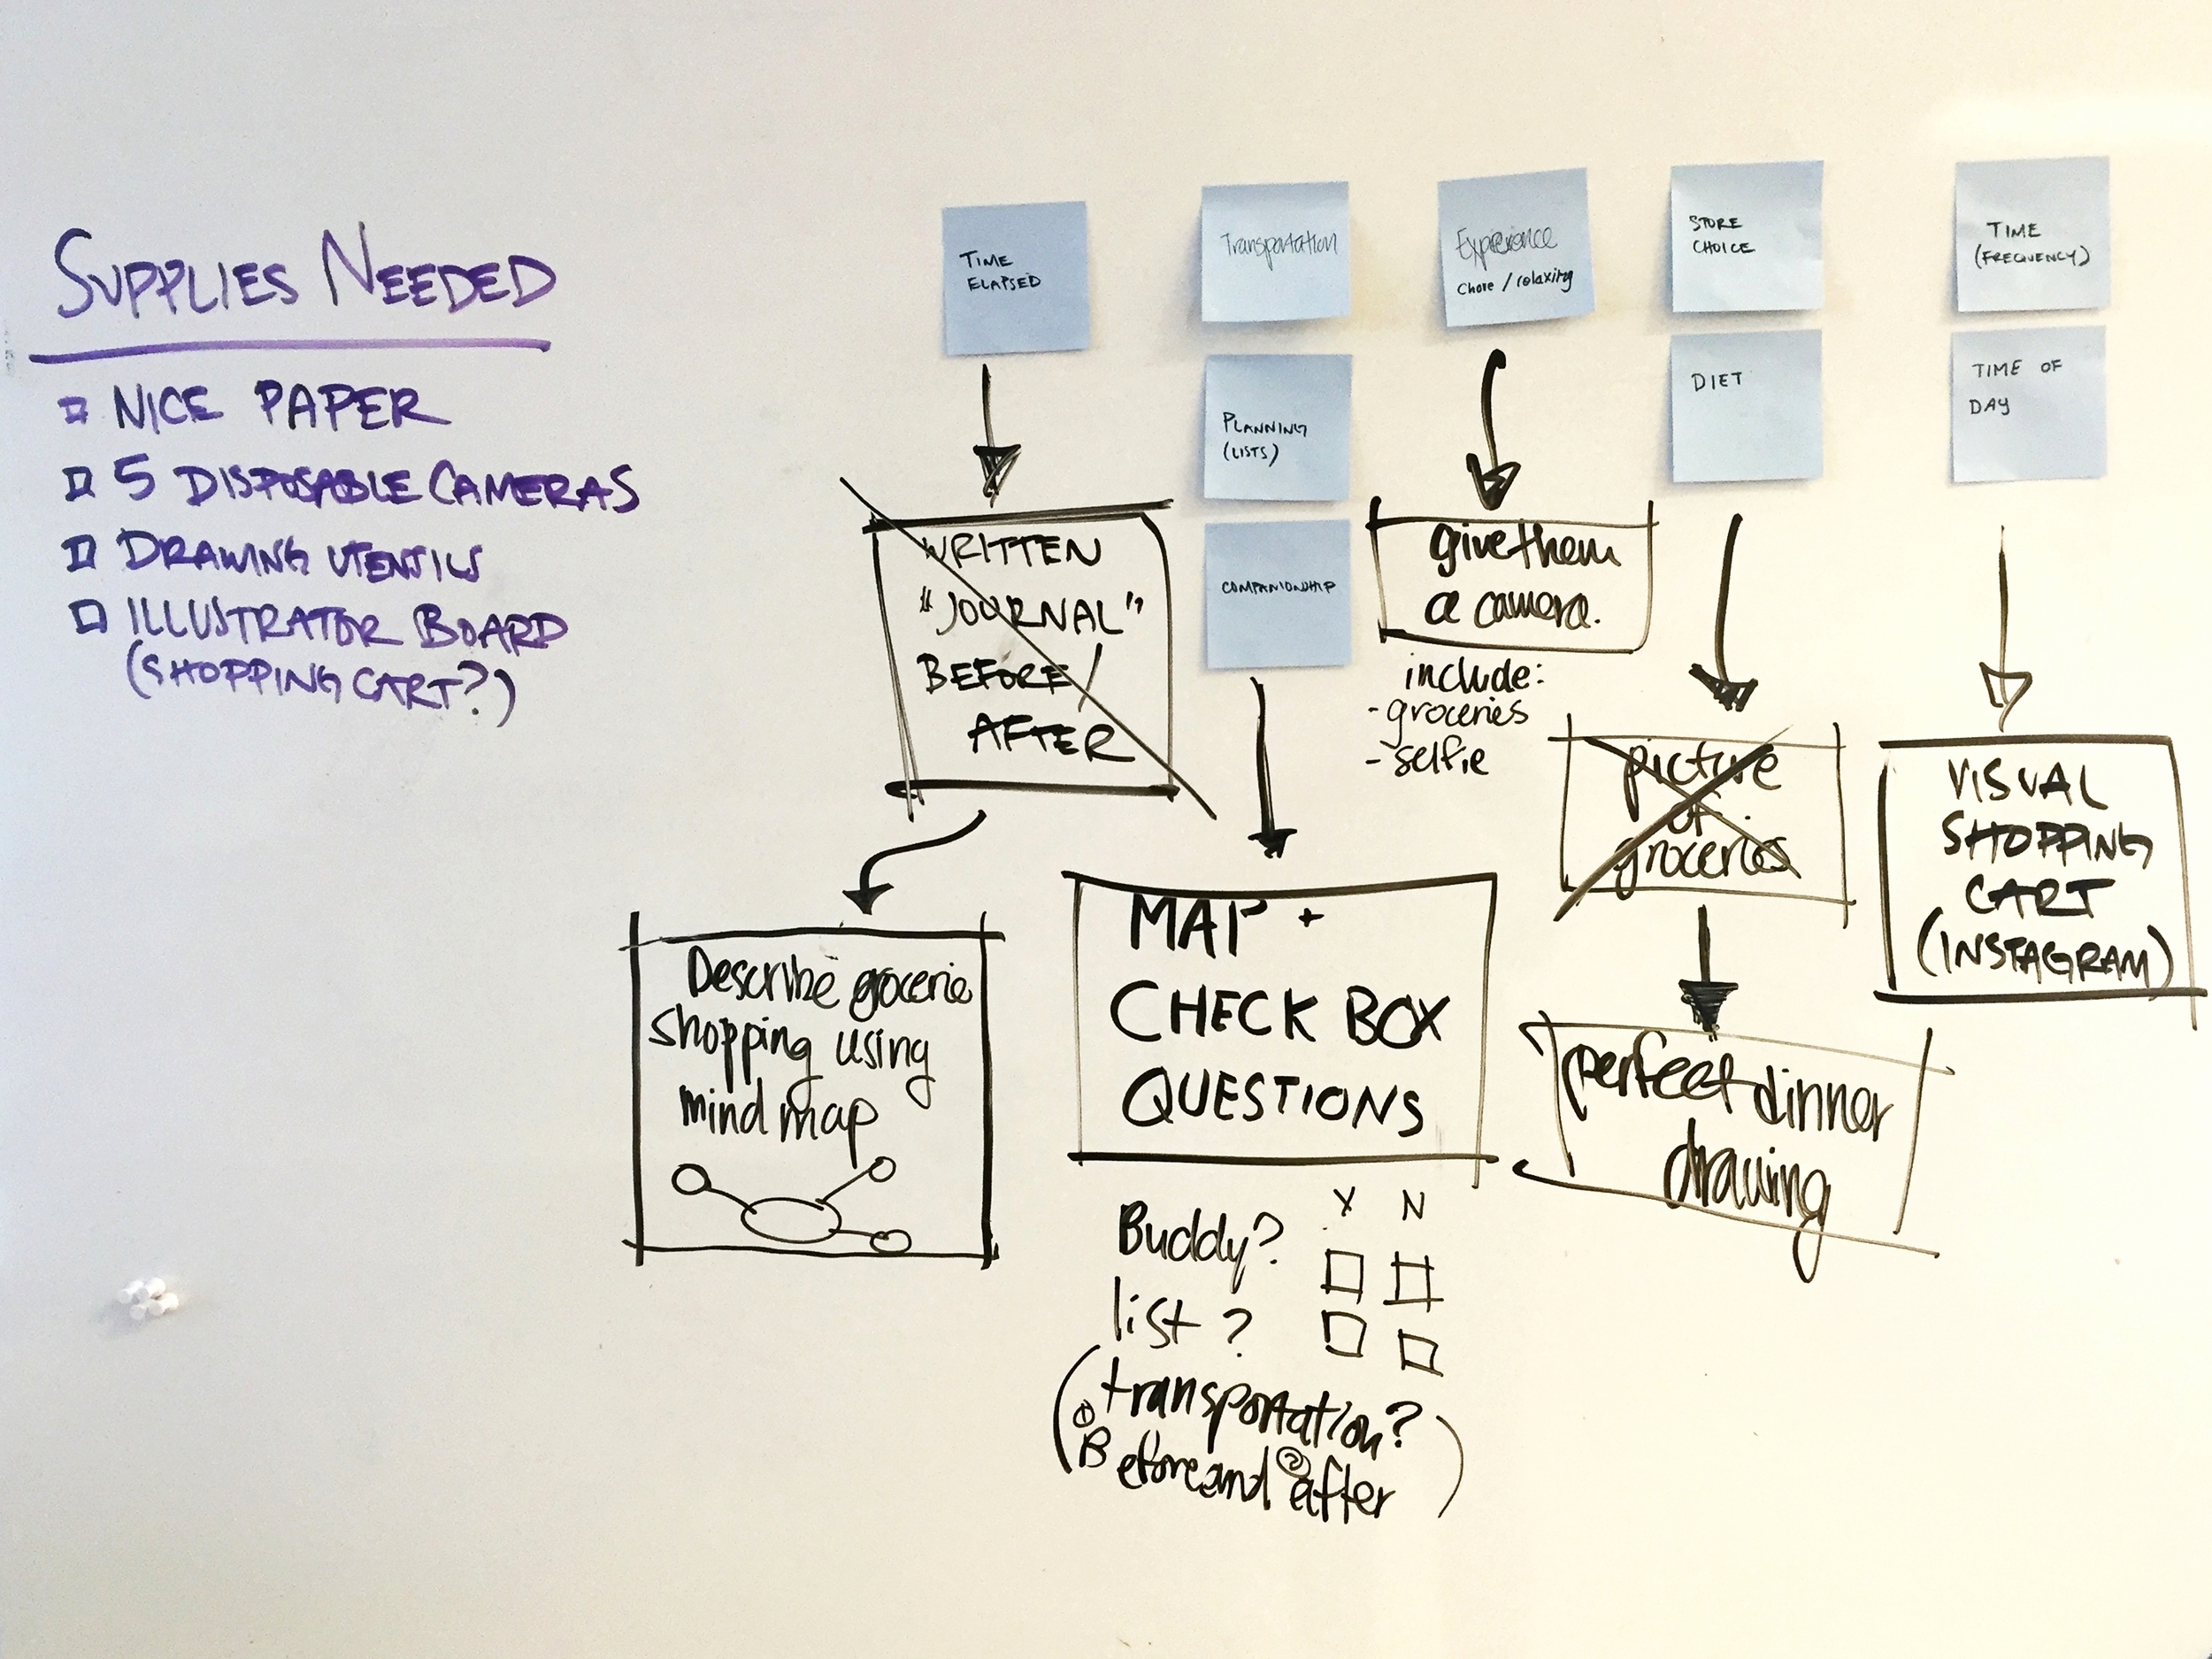 SUPPLIES NEEDED
NICE PAPER
5 DISPOSABLE CAMERAS
DRAWING UTENSILS
ILLUSTRATOR BOARD
(SHOPPING CART?)
TIME
ELAPSED
WRITTEN
"JOURNAL"
BEFORE/
AFTER
Describe grocerie
shopping using
mind map
Transportation
PLANNING
(LISTS)
COMPANIONSHIP
MAP +
CHECK BOX
QUESTIONS
Y N
Buddy?
list?
(transportation?
① Before and ② after)
Experience
chore / relaxing
give them
a camera.
include:
- groceries
- selfie
STORE
CHOICE
DIET
picture
of
groceries
perfect dinner
drawing
TIME
(FREQUENCY)
TIME OF
DAY
VISUAL
SHOPPING
CART
(INSTAGRAM)